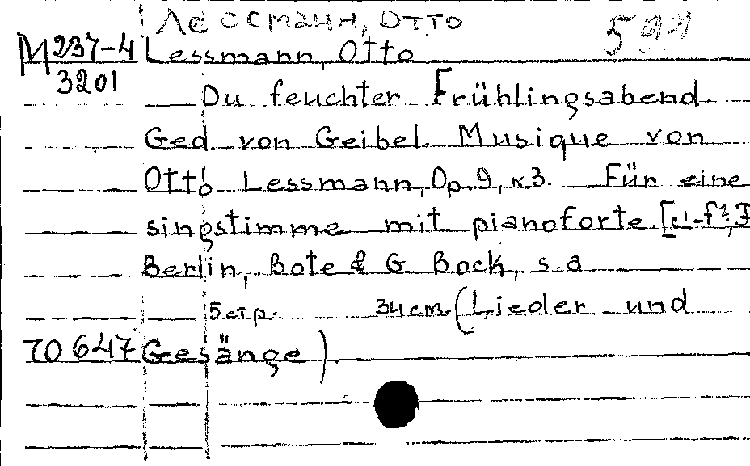 Лессманн, Отто
М237-4 Lessmann, Otto
3201
Du feuchter Frühlingsabend
Ged. von Geibel. Musique von
Otto Lessmann, Op. 9, №3. Für eine
singstimme mit pianoforte.
Berlin, Bote & G Bock, s.a
5 стр. 34 cm. (Lieder und
70647 Gesänge).